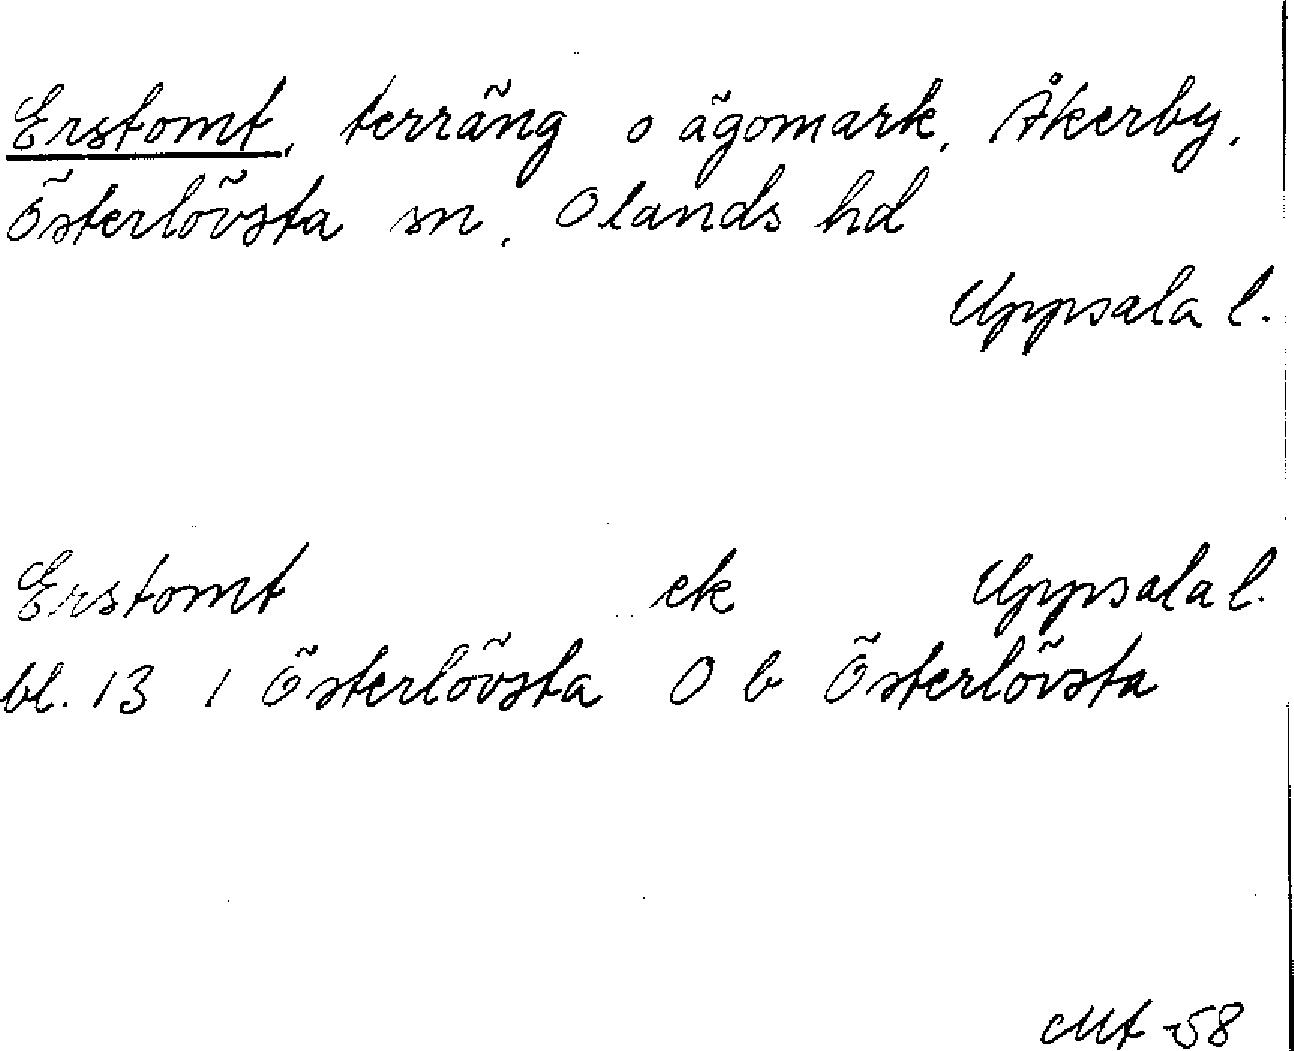 Erstomt, terräng o ägomark, Åkerby,
Österlövsta sn, Olands hd
Uppsala l.
Erstomt ek Uppsala l.
bl. 13 1 Österlövsta O b Österlövsta
Mt -58